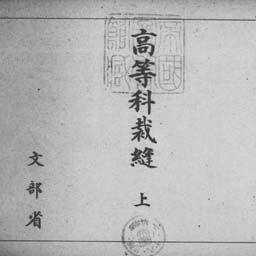 高等科裁縫 上
文部省